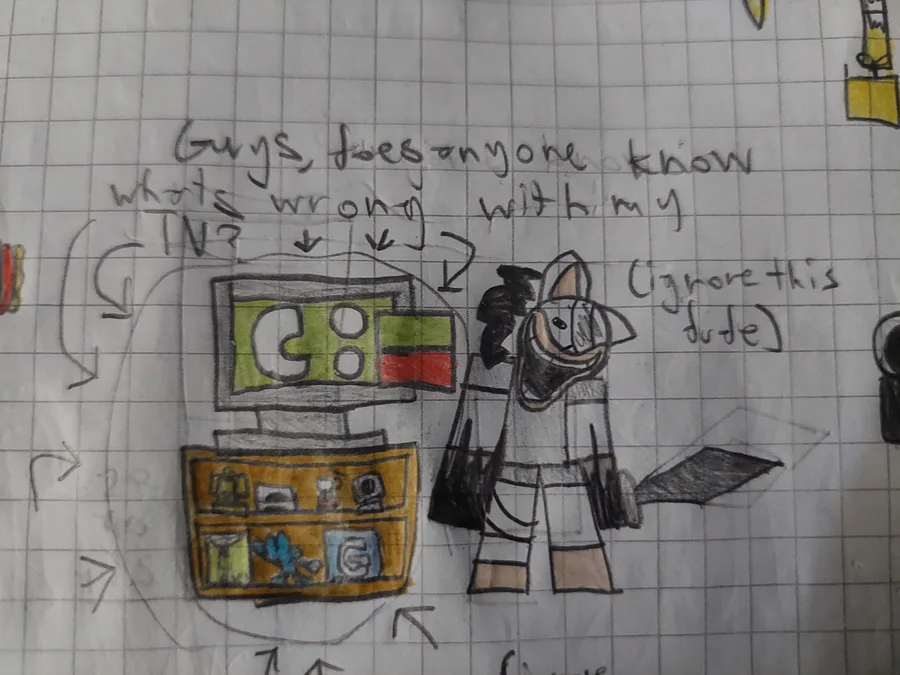 Guys, does anyone know
whats wrong with my
TV?
(ignore this
dude)
G